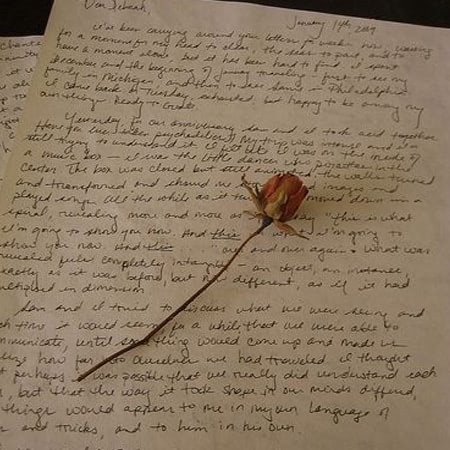 January 14th, 2009
Dear
I've been carrying around your letter for weeks now, waiting
for a moment for my head to clear, the seas to part, and to
have a moment alone, but it has been hard to find. I spent
December and the beginning of January traveling - first to see my
family in Michigan, and then to see Sam's in Philadelphia.
I came back on Tuesday, exhausted, but happy to be among my
own things. Ready to create.
Yesterday, for our anniversary, Sam and I took acid together.
Have you ever taken psychedelics? My trip was intense and I'm
still trying to understand it. I felt like I was on the inside of
a music box - I was the little dancer who in the
center. The box was closed but still animated. The walls turned
and transformed and showed me images and
played songs. All the while as it moved down in a
spiral, revealing more and more as "this is what
I'm going to show you now. And this what I'm going to
show you now. And this ..." over and over again. What was
revealed felt completely intangible - an object, an instance,
exactly as it was before, but now different, as if it had
multiplied in dimension.
Sam and I tried to discuss what we were seeing and
each time it would seem for a while that we were able to
communicate, until something would come up and made us
how far into ourselves we had traveled. I thought
perhaps it was possible that we really did understand each
, but that the way it took shape in our minds differed,
things would appear to me in my own language of
and tricks, and to him in his own.